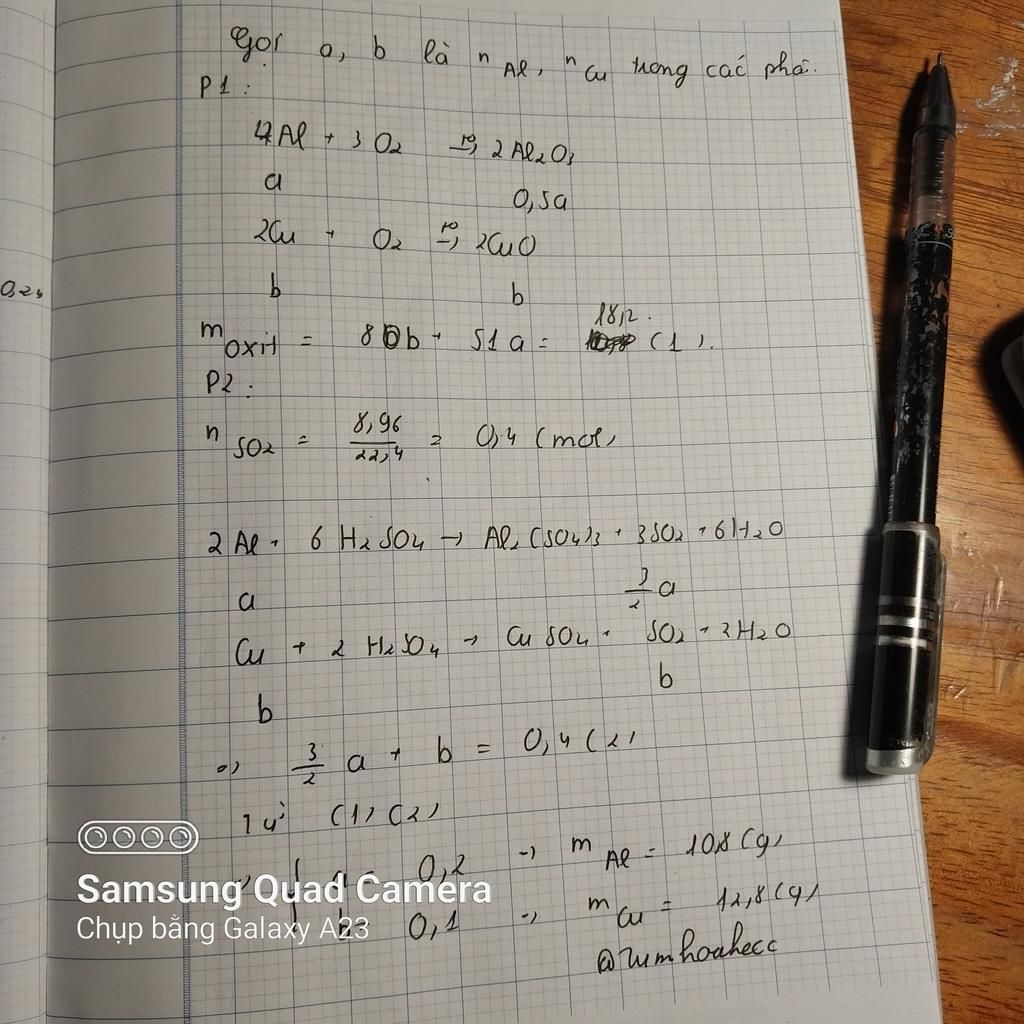 Gọi a, b là n Al, n Cu trong các phâ.
P1 :
4Al + 3O2 t°→ 2Al2O3
a 0,5a
2Cu + O2 t°→ 2CuO
0,24
b b
18,2.
m oxit = 80b + 51a = (1).
P2 :
n SO2 = 8,96/22,4 = 0,4 (mol)
2Al + 6H2SO4 → Al2(SO4)3 + 3SO2 + 6H2O
a 3/2 a
Cu + 2H2SO4 → CuSO4 + SO2 + 2H2O
b b
=> 3/2 a + b = 0,4 (2)
Từ (1) (2)
a = 0,2 → m Al = 10,8 (g)
Samsung Quad Camera
b 0,1 → m Cu = 12,8 (g)
Chụp bằng Galaxy A23